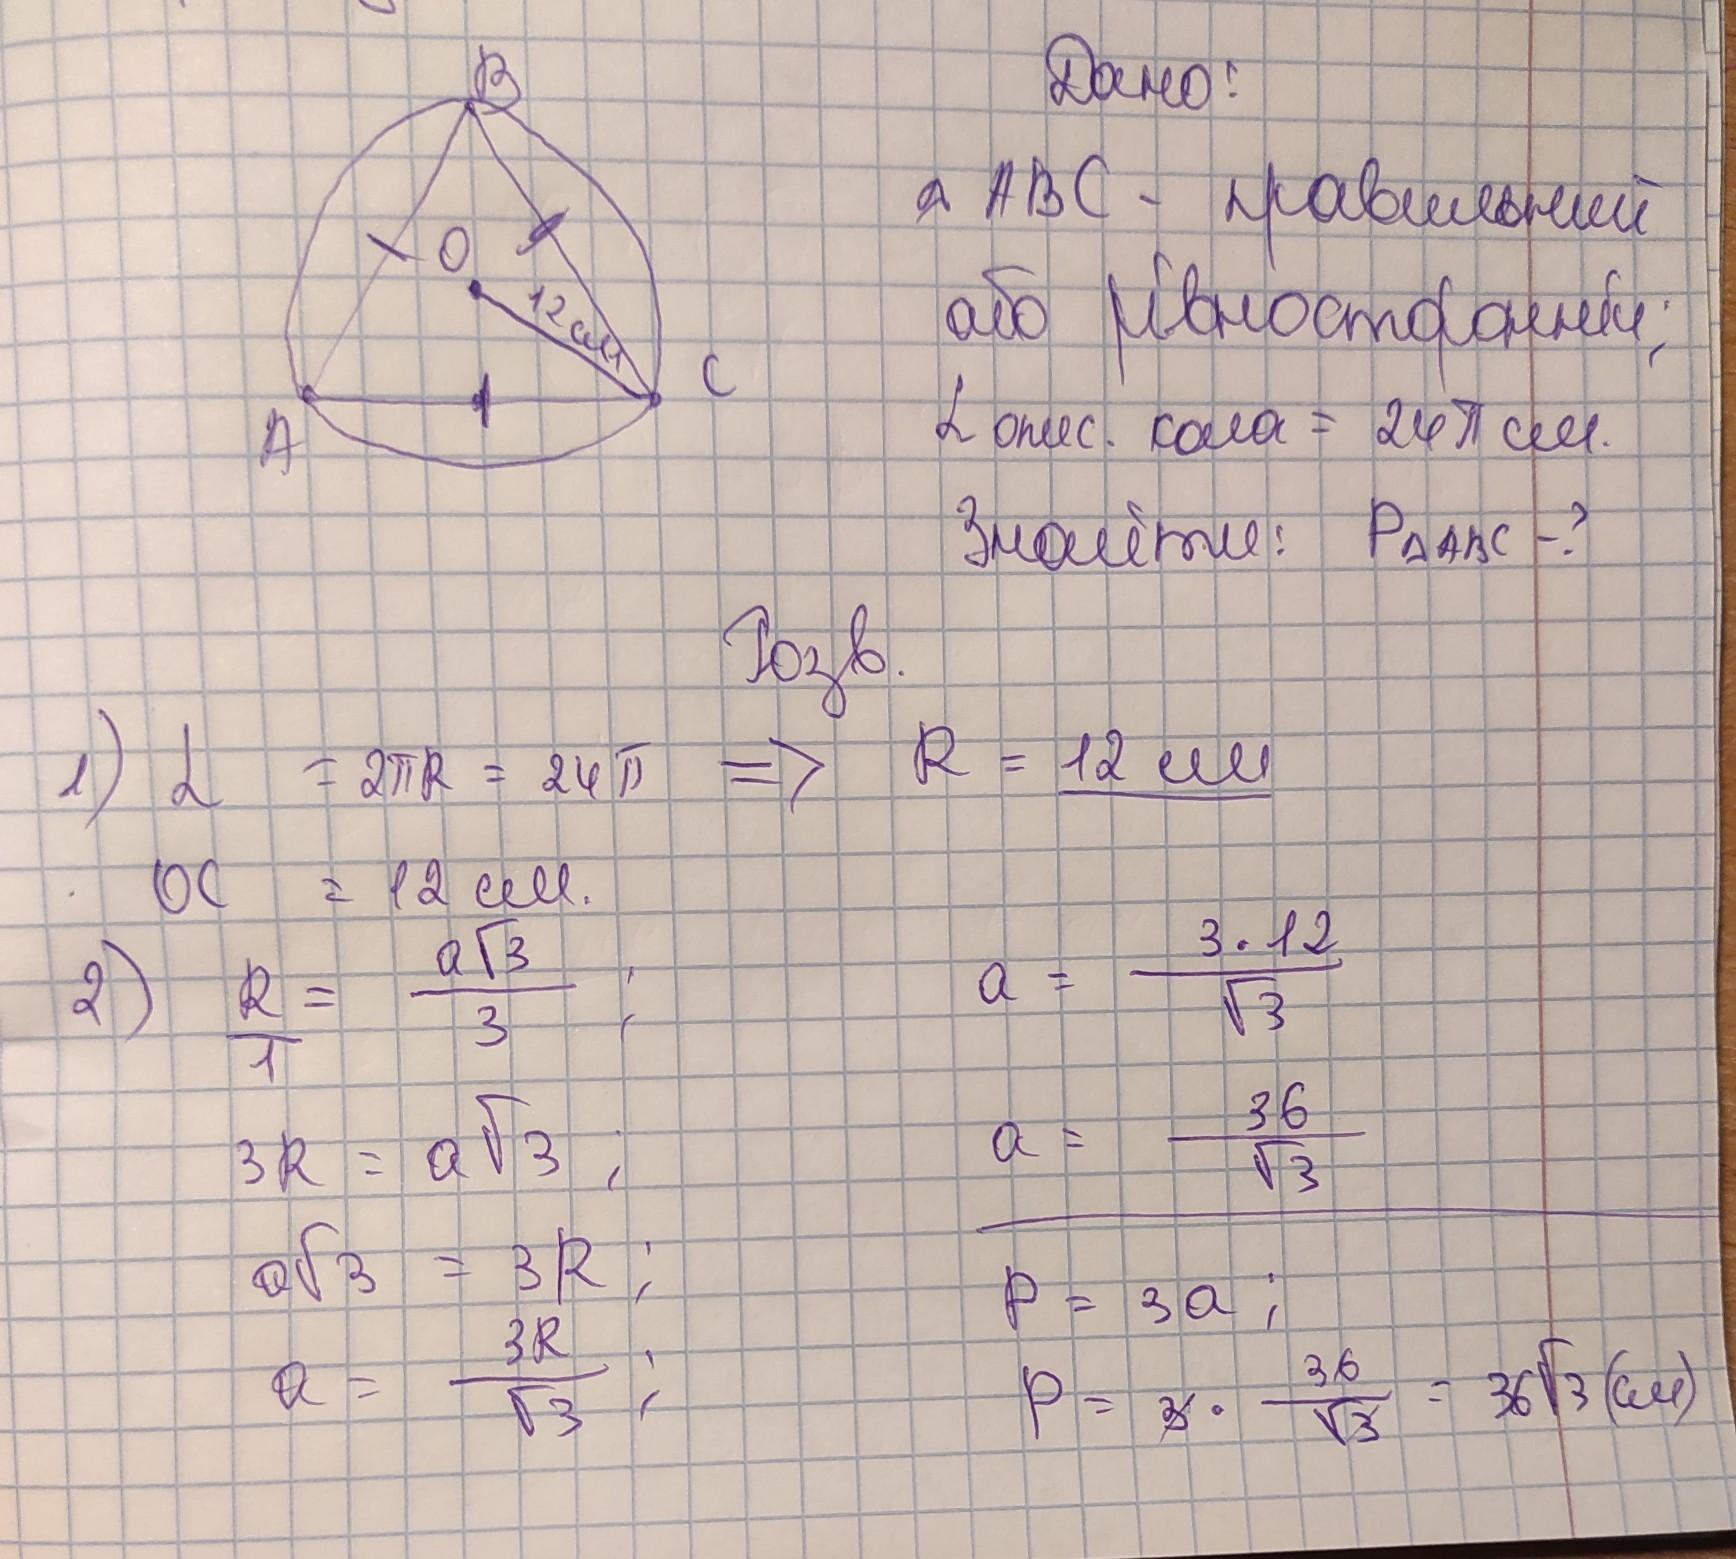 B
O
12 см
A
C
Дано:
△ ABC - правильний
або рівносторонній;
L опис. кола = 24π см.
Знайти: P△ABC -?
Розв.
1) L = 2πR = 24π => R = 12 см
OC = 12 см.
2) R/1 = a√3/3 ;
3R = a√3 ;
a√3 = 3R ;
a = 3R/√3 ;
a = 3·12/√3
a = 36/√3
P = 3a ;
P = 3 · 36/√3 = 36√3 (см)